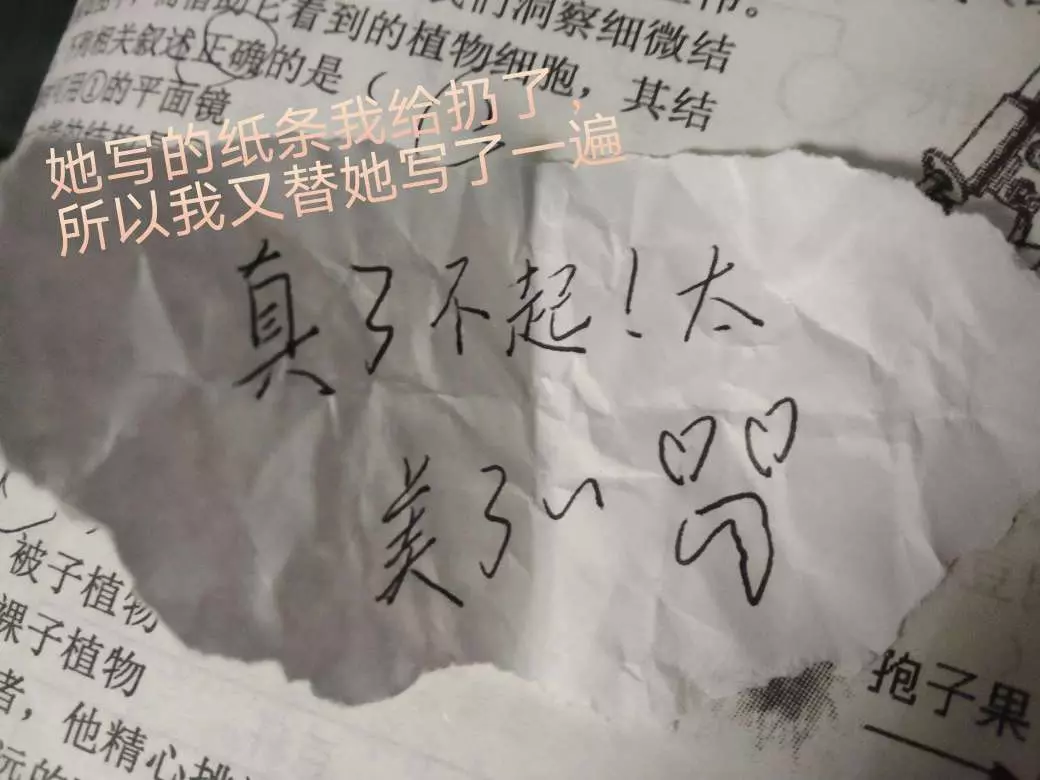 我们洞察细微结
它看到的植物细胞，其结
相关叙述正确的是（
用①的平面镜
她写的纸条我给扔了，
所以我又替她写了一遍
真了不起！太
美了
被子植物
裸子植物
者，他精心挑
孢子果